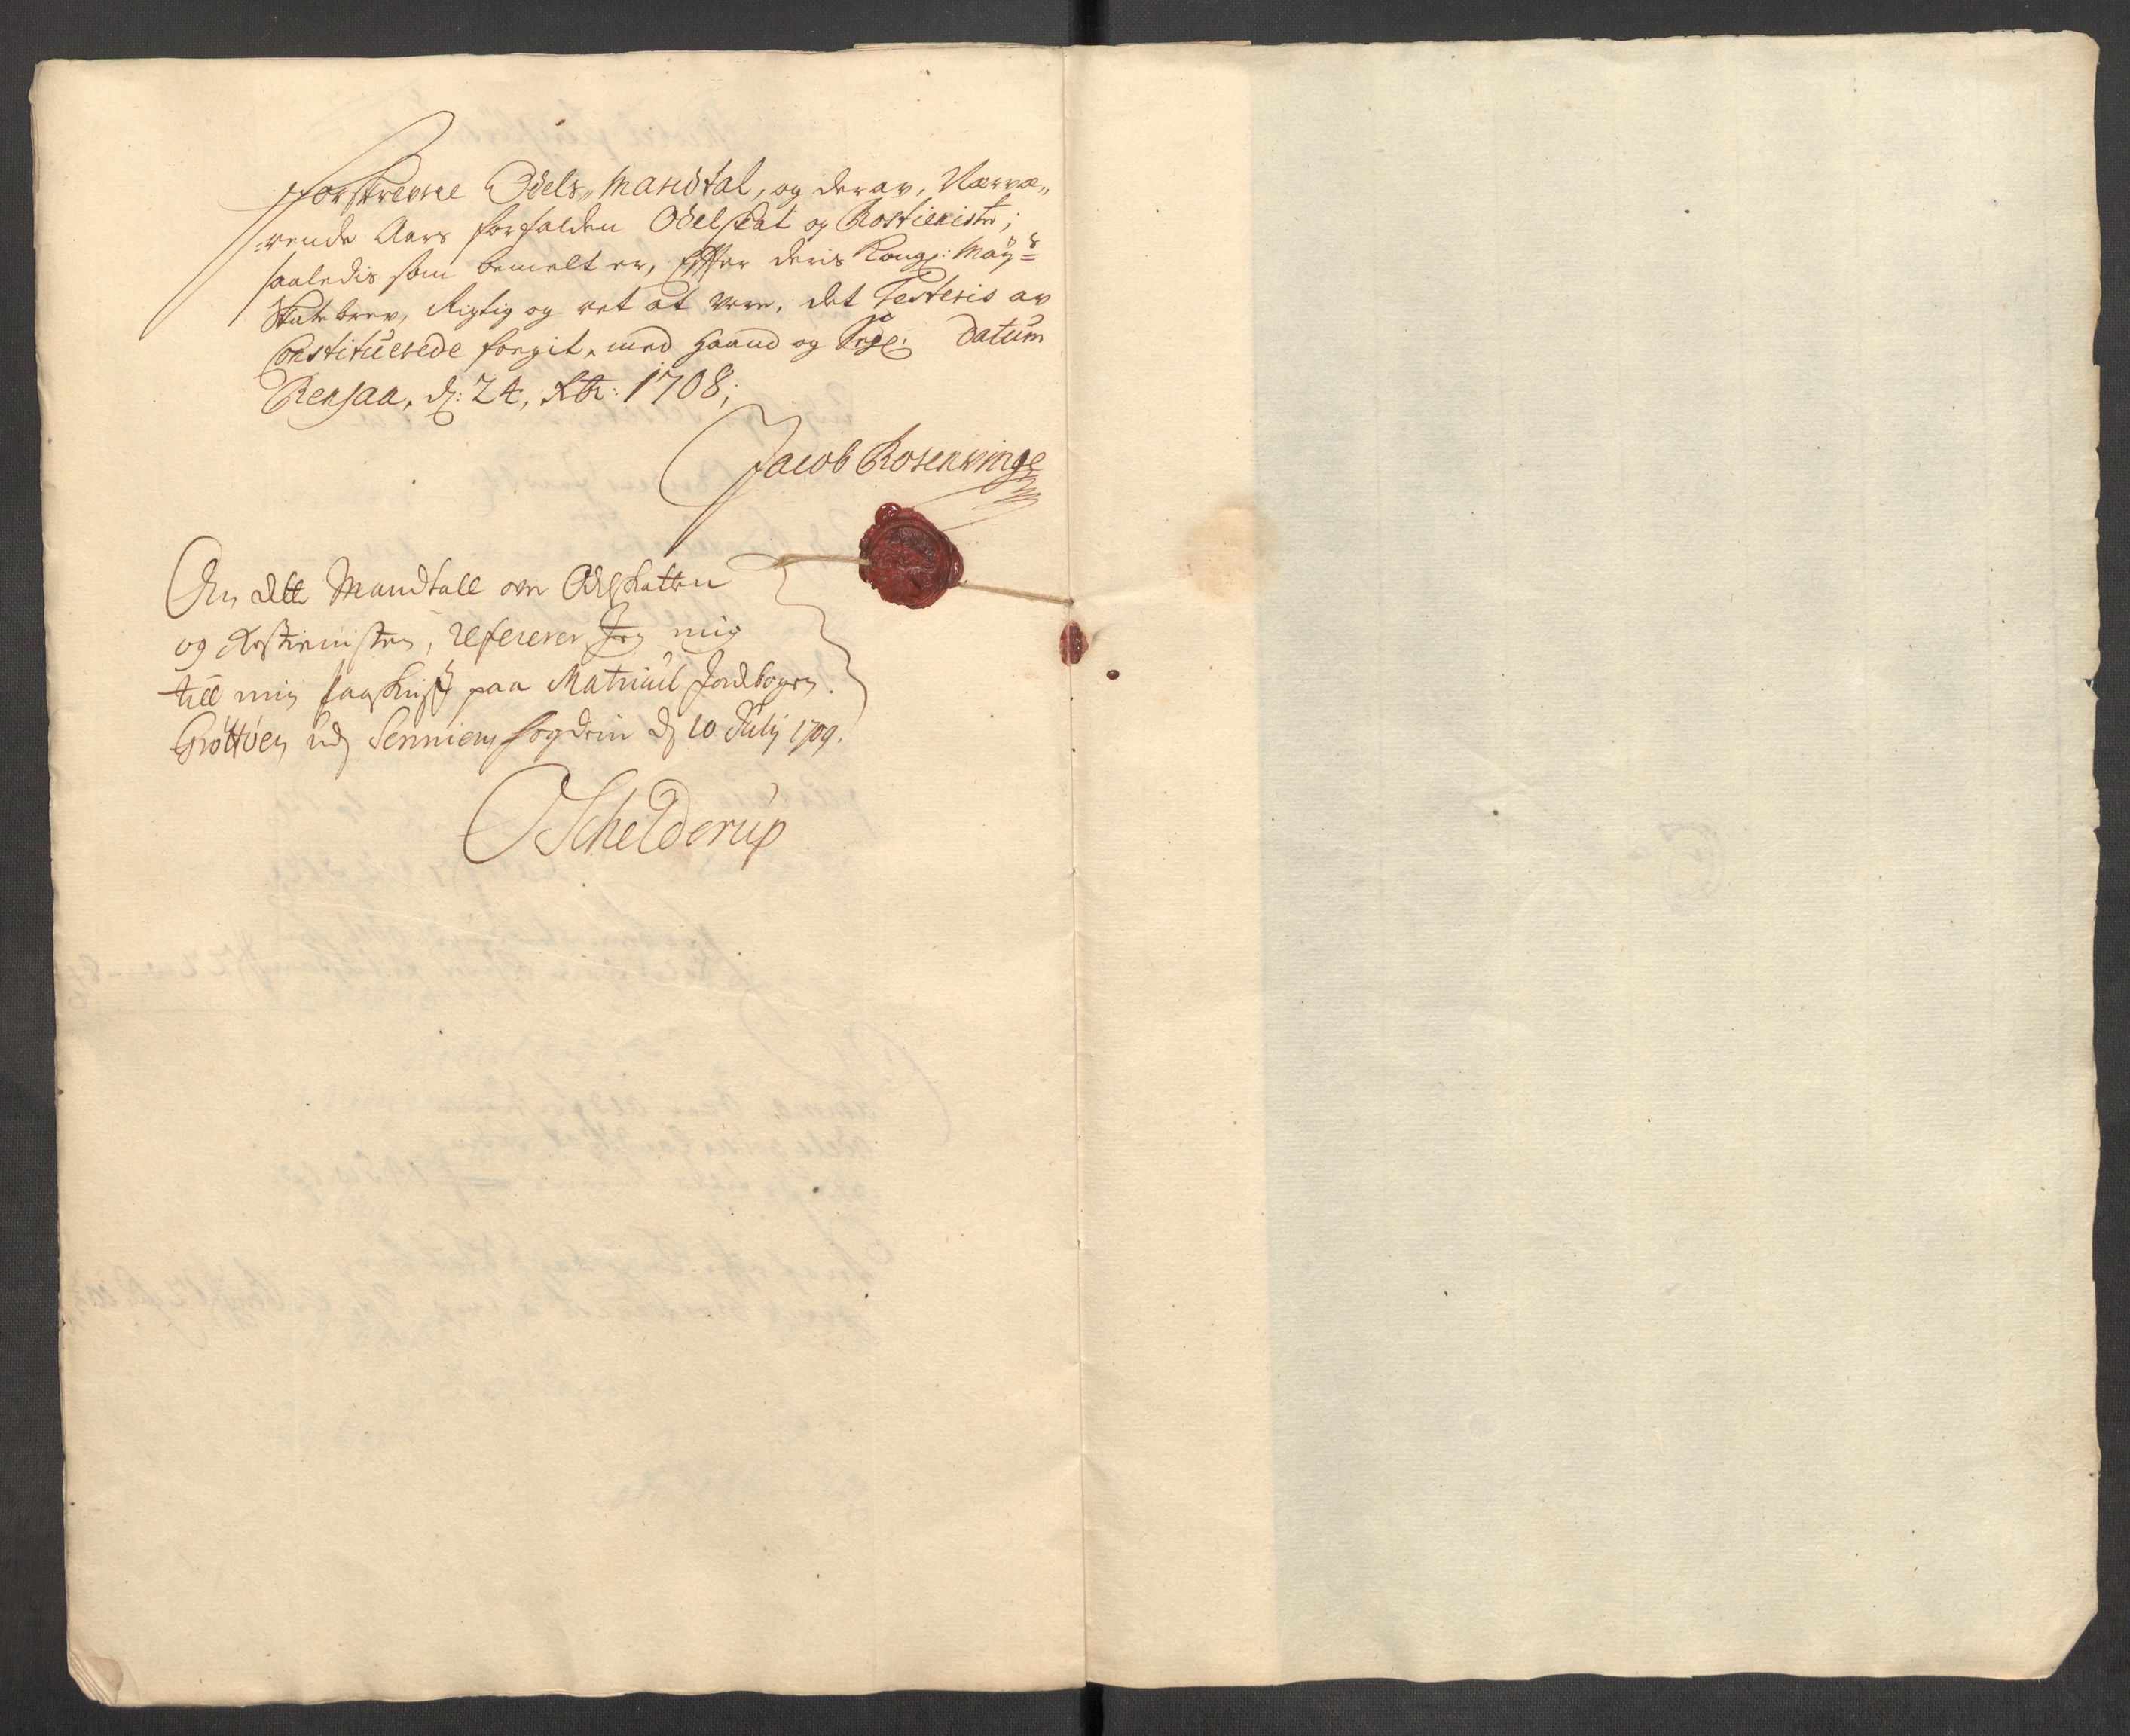 Forskrevne Odels„ Mandtal, og derav, Nærvæ„
„rende Aars forfalden Odelskat og Rostieniste;
saaledis som bemelt er, Efter deris Kongl: May:ts
Skatebrev, Rigtig og ret at vere, det Testeris av
Constituerede foegit, med Haand og Segl; Datum
Rensaa, d: 24, Xbr: 1708;
Jacob Rosenvinge
An dette Mandtall over Odelskatten
og Rostienisten, refererer Jeg mig
till min paaskrifft paa Matricul Jordbogen.
Gröttöen udj Senniens fogderie d 10 Julij 1709.
O Schelderup